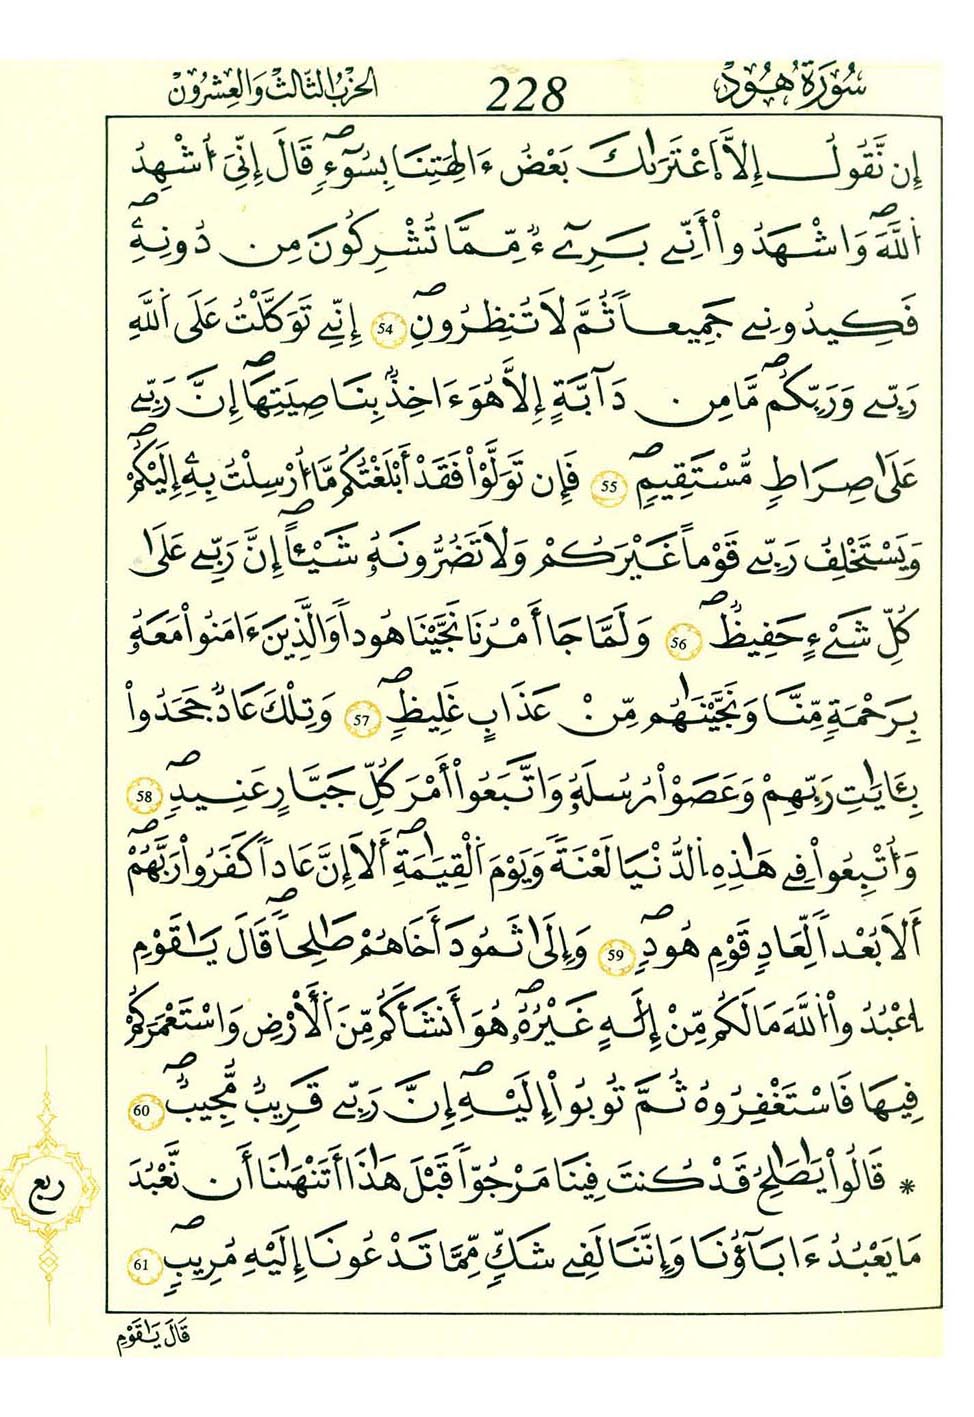 سُورَةُ هُودٍ
228
الحِزْبُ الثَّالِثُ وَالعِشْرُونَ
إِن نَّقُولُ إِلَّا اَ۪عْتَر۪ىٰكَ بَعْضُ ءَالِهَتِنَا بِسُوٓءٖۖ قَالَ إِنِّيَ أُشْهِدُ
اُ۬للَّهَۖ وَاشْهَدُوٓاْ أَنِّے بَرِےٓءٞ مِّمَّا تُشْرِكُونَ مِن دُونِهِۦۖ
فَكِيدُونِے جَمِيعاٗ ثُمَّ لَا تُنظِرُونِۖ 54 إِنِّے تَوَكَّلْتُ عَلَى اَ۬للَّهِ
رَبِّے وَرَبِّكُمۖ مَّا مِن دَآبَّةٍ إِلَّا هُوَ ءَاخِذُۢ بِنَاصِيَتِهَآۖ إِنَّ رَبِّے
عَلَىٰ صِرَٰطٖ مُّسْتَقِيمٖۖ 55 فَإِن تَوَلَّوْاْ فَقَدْ أَبْلَغْتُكُم مَّآ أُرْسِلْتُ بِهِۦٓ إِلَيْكُمْۖ
وَيَسْتَخْلِفُ رَبِّے قَوْماً غَيْرَكُمْ وَلَا تَضُرُّونَهُۥ شَيْـٔاًۖ إِنَّ رَبِّے عَلَىٰ
كُلِّ شَےْءٍ حَفِيظٞۖ 56 وَلَمَّا جَا أَمْرُنَا نَجَّيْنَا هُوداٗ وَالذِينَ ءَامَنُواْ مَعَهُۥ
بِرَحْمَةٖ مِّنَّا وَنَجَّيْنَٰهُم مِّنْ عَذَابٍ غَلِيظٖۖ 57 وَتِلْكَ عَادٞ جَحَدُواْ
بِـَٔايَٰتِ رَبِّهِمْ وَعَصَوْاْ رُسُلَهُۥ وَاتَّبَعُوٓاْ أَمْرَ كُلِّ جَبَّارٍ عَنِيدٖۖ 58
وَأُتْبِعُواْ فِے هَٰذِهِ اِ۬لدُّنْيَا لَعْنَةٗ وَيَوْمَ اَ۬لْقِيَٰمَةِۖ أَلَآ إِنَّ عَاداٗ كَفَرُواْ رَبَّهُمْۖ
أَلَا بُعْداٗ لِّعَادٖ قَوْمِ هُودٖۖ 59 وَإِلَىٰ ثَمُودَ أَخَاهُمْ صَٰلِحاٗۖ قَالَ يَٰقَوْمِ
اِ۟عْبُدُواْ اُ۬للَّهَ مَا لَكُم مِّنْ إِلَٰهٍ غَيْرُهُۥۖ هُوَ أَنشَأَكُم مِّنَ اَ۬لْأَرْضِ وَاسْتَعْمَرَكُمْ
فِيهَا فَاسْتَغْفِرُوهُ ثُمَّ تُوبُوٓاْ إِلَيْهِۖ إِنَّ رَبِّے قَرِيبٞ مُّجِيبٞۖ 60
* قَالُواْ يَٰصَٰلِحُ قَدْ كُنتَ فِينَا مَرْجُوّاٗ قَبْلَ هَٰذَآ أَتَنْهَيٰنَآ أَن نَّعْبُدَ
مَا يَعْبُدُ ءَابَآؤُنَا وَإِنَّنَا لَفِے شَكّٖ مِّمَّا تَدْعُونَآ إِلَيْهِ مُرِيبٖۖ 61
ربع
قَالَ يَٰقَوْمِ